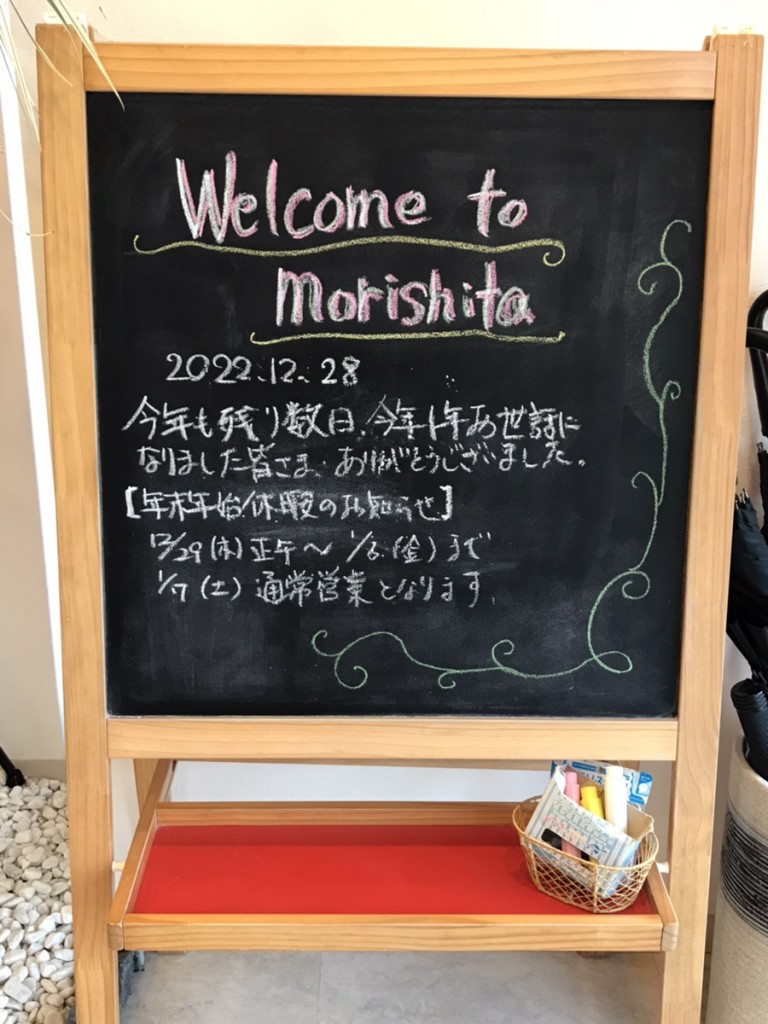 Welcome to
Morishita
2022.12.28
今年も残り数日、今年1年お世話に
なりました皆さま、ありがとうございました。
[年末年始休暇のお知らせ]
12/29(木)正午〜1/6(金)まで
1/7(土)通常営業となります。